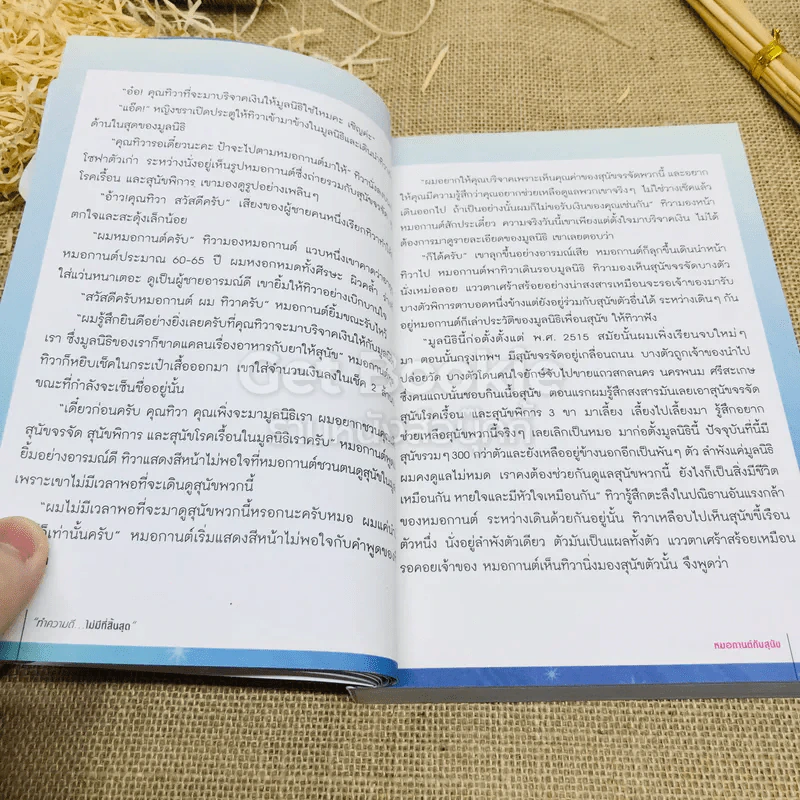 "อ๋อ! คุณทิวาที่จะมาบริจาคเงินให้มูลนิธิใช่ไหมคะ เชิญค่ะ"
"แอ๊ด!" หญิงชราเปิดประตูให้ทิวาเข้ามาข้างในมูลนิธิและเดินนำ
ด้านในสุดของมูลนิธิ
"คุณทิวารอเดี๋ยวนะคะ ป้าจะไปตามหมอกานต์มาให้" ทิวานั่งลง
โซฟาตัวเก่า ระหว่างนั่งอยู่เห็นรูปหมอกานต์ซึ่งถ่ายรวมกับสุนัขจรจัด
โรคเรื้อน และสุนัขพิการ เขามองดูรูปอย่างเพลินๆ
"อ้าว!คุณทิวา สวัสดีครับ" เสียงของผู้ชายคนหนึ่งเรียกทิวา
ตกใจและสะดุ้งเล็กน้อย
"ผมหมอกานต์ครับ" ทิวามองหมอกานต์ แวบหนึ่งเขาคาดว่า
หมอกานต์ประมาณ 60-65 ปี ผมหงอกหมดทั้งศีรษะ ผิวคล้ำ
ใส่แว่นหนาเตอะ ดูเป็นผู้ชายอารมณ์ดี เขายิ้มให้ทิวาอย่างเบิกบานใจ
"สวัสดีครับหมอกานต์ ผม ทิวาครับ" หมอกานต์ยิ้มขณะรับไหว้
"ผมรู้สึกยินดีอย่างยิ่งเลยครับที่คุณทิวาจะมาบริจาคเงินให้กับมูลนิธิ
เรา ซึ่งมูลนิธิของเราก็ขาดแคลนเรื่องอาหารกับยาให้สุนัข" หมอกานต์
ทิวาก็หยิบเช็คในกระเป๋าเสื้อออกมา เขาใส่จำนวนเงินลงในเช็ค 2
ขณะที่กำลังจะเซ็นชื่ออยู่นั้น
"เดี๋ยวก่อนครับ คุณทิวา คุณเพิ่งจะมามูลนิธิเรา ผมอยากชวน
สุนัขจรจัด สุนัขพิการ และสุนัขโรคเรื้อนในมูลนิธิเราครับ" หมอกานต์
ยิ้มอย่างอารมณ์ดี ทิวาแสดงสีหน้าไม่พอใจที่หมอกานต์ชวนตนดูสุนัขใน
เพราะเขาไม่มีเวลาพอที่จะเดินดูสุนัขพวกนี้
"ผมไม่มีเวลาพอที่จะมาดูสุนัขพวกนี้หรอกนะครับหมอ ผมแค่
ก็เท่านั้นครับ" หมอกานต์เริ่มแสดงสีหน้าไม่พอใจกับคำพูดของ
"ทำความดี...ไม่มีที่สิ้นสุด"
"ผมอยากให้คุณบริจาคเพราะเห็นคุณค่าของสุนัขจรจัดพวกนี้ และอยาก
ให้คุณมีความรู้สึกว่าคุณอยากช่วยเหลือดูแลพวกเขาจริงๆ ไม่ใช่วางเช็คแล้ว
เดินออกไป ถ้าเป็นอย่างนั้นผมก็ไม่ขอรับเงินของคุณเช่นกัน" ทิวามองหน้า
หมอกานต์สักประเดี๋ยว ความจริงวันนี้เขาเพียงแต่ตั้งใจมาบริจาคเงิน ไม่ได้
ต้องการมาดูรายละเอียดของมูลนิธิ เขาเลยตอบว่า
"ก็ได้ครับ" เขาลุกขึ้นอย่างอารมณ์เสีย หมอกานต์ก็ลุกขึ้นเดินนำหน้า
ทิวาไป หมอกานต์พาทิวาเดินรอบมูลนิธิ ทิวามองเห็นสุนัขจรจัดบางตัว
นั่งเหม่อลอย แววตาเศร้าสร้อยอย่างน่าสงสารเหมือนจะรอเจ้าของมารับ
บางตัวพิการตาบอดหนึ่งข้างแต่ยังอยู่ร่วมกับสุนัขตัวอื่นได้ ระหว่างเดินๆ กัน
อยู่หมอกานต์ก็เล่าประวัติของมูลนิธิเพื่อนสุนัข ให้ทิวาฟัง
"มูลนิธินี้ก่อตั้งตั้งแต่ พ.ศ. 2515 สมัยนั้นผมเพิ่งเรียนจบใหม่ๆ
มา ตอนนั้นกรุงเทพฯ มีสุนัขจรจัดอยู่เกลื่อนถนน บางตัวถูกเจ้าของนำไป
ปล่อยวัด บางตัวโดนคนใจยักษ์จับไปขายแถวสกลนคร นครพนม ศรีสะเกษ
ซึ่งคนแถบนั้นชอบกินเนื้อสุนัข ตอนแรกผมรู้สึกสงสารมันเลยเอาสุนัขจรจัด
สุนัขโรคเรื้อน และสุนัขพิการ 3 ขา มาเลี้ยง เลี้ยงไปเลี้ยงมา รู้สึกอยาก
ช่วยเหลือสุนัขพวกนี้จริงๆ เลยเลิกเป็นหมอ มาก่อตั้งมูลนิธินี้ ปัจจุบันที่นี่มี
สุนัขรวมๆ 300 กว่าตัวและยังเหลืออยู่ข้างนอกอีกเป็นพันๆ ตัว ลำพังแค่มูลนิธิ
ผมคงดูแลไม่หมด เราคงต้องช่วยกันดูแลสุนัขพวกนี้ ยังไงก็เป็นสิ่งมีชีวิต
เหมือนกัน หายใจและมีหัวใจเหมือนกัน" ทิวารู้สึกตะลึงในปณิธานอันแรงกล้า
ของหมอกานต์ ระหว่างเดินด้วยกันอยู่นั้น ทิวาเหลือบไปเห็นสุนัขขี้เรือน
ตัวหนึ่ง นั่งอยู่ลำพังตัวเดียว ตัวมันเป็นแผลทั้งตัว แววตาเศร้าสร้อยเหมือน
รอคอยเจ้าของ หมอกานต์เห็นทิวานิ่งมองสุนัขตัวนั้น จึงพูดว่า
หมอกานต์กับสุนัข
Get Bookie